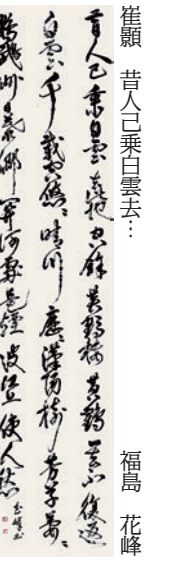 崔顥　昔人己乘白雲去…　福島　花峰
昔人已乘白雲去此地空餘黃鶴樓黃鶴一去不復返
白雲千載空悠々晴川歷々漢陽樹芳草萋々
鸚鵡洲日暮鄉關何處是煙波江上使人愁　花峰書